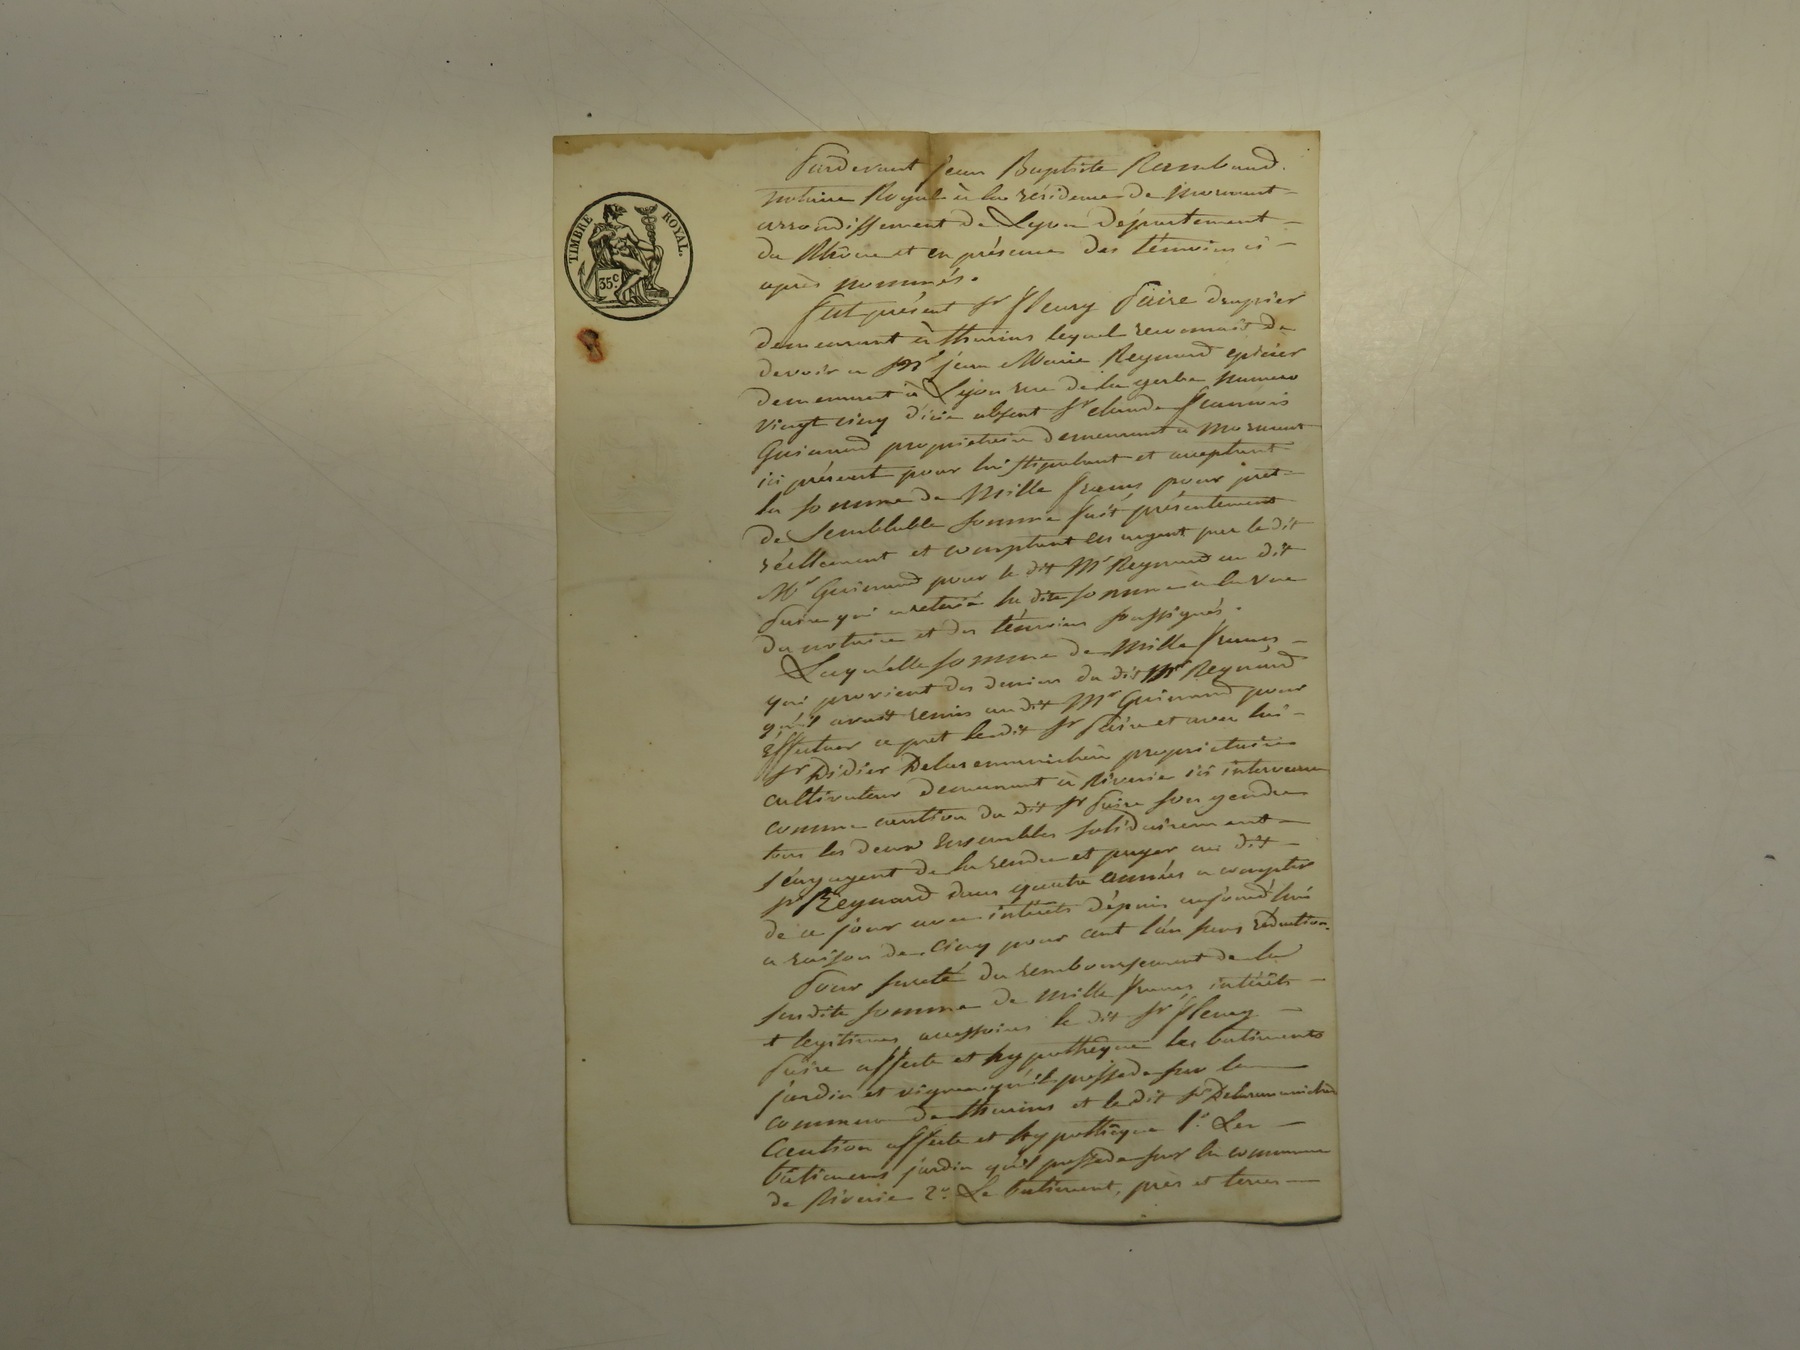 TIMBRE ROYAL.
35c.
Pardevant Jean Baptiste Rambaud.
notaire Royal à la résidence de Mornant
arrondissement de Lyon département
du Rhône et en présence des témoins ci-
après nommés.
fut présent Sr fleury faire drapier
demeurant à thurins lequel reconnaît de
devoir a Mr jean Marie Reynard epicier
demeurant à Lyon rue de la gerbe numero
vingt cinq d'icie absent Sr claude francois
Guinand proprietaire demeurant à Mornant
ici présent pour lui stipulant et acceptant
la somme de Mille francs pour pret
de Semblable somme fait présentement
réellement et comptant en argent par le dit
Mr Guinand pour le dit Mr Reynard au dit
faire qui a retiré la dite somme à la vue
du notaire et des témoins soussignés.
Laquelle somme de Mille francs
qui provient des deniers du dit Mr Reynard
qu'il avait remis au dit Mr Guinand pour
effectuer ce pret le dit Sr faire et avec lui
Sr Didier proprietaire
cultivateur demeurant à Riverie ici intervenu
comme caution du dit Sr faire son gendre
tous les deux ensembles solidairement
s'engagent de la rendre et payer au dit
Sr Reynard dans quatre années a compter
de ce jour avec intérêts dépuis aujourd'hui
a raison de cinq pour cent l'an sans réduction.
Pour sureté du remboursement de la
susdite somme de mille francs, intérêts
et legitimes accessoires le dit Sr fleury
faire affecte et hypothèque les batiments
jardin et vigne qu'il possede sur la
commune de thurins et le dit Sr
Caution affecte et hypothèque 1o. Les
bâtimens jardin qu'il possede sur la commune
de Riverie 2o. Le batiment, près et terres